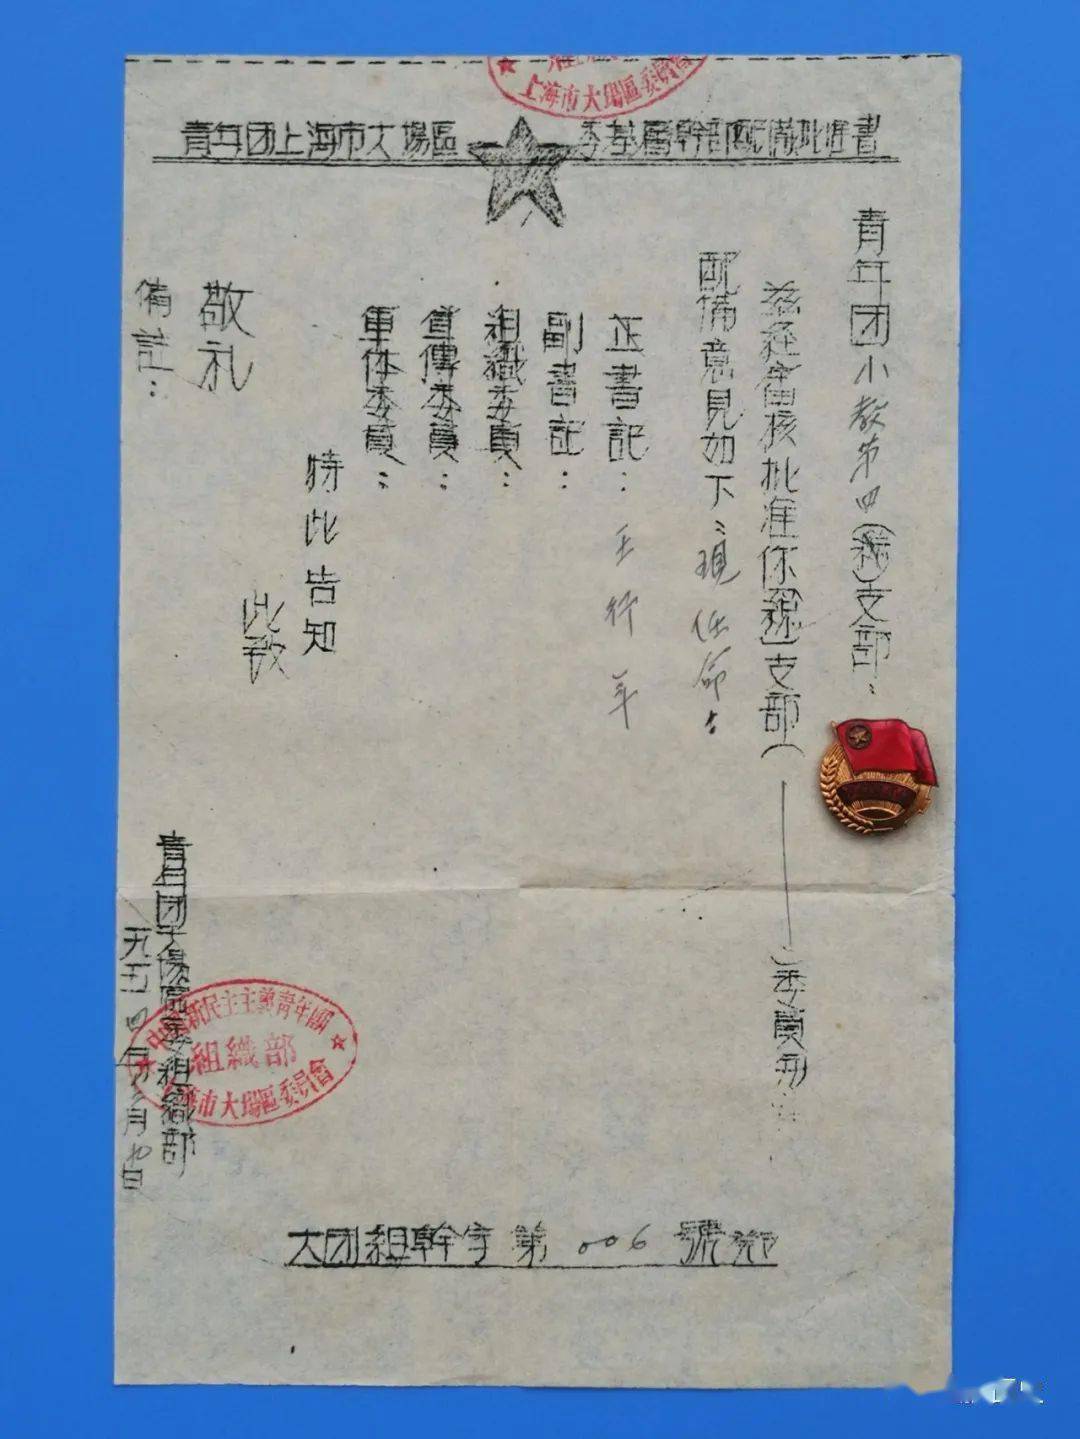 上海市大場區委員會
青年团上海市大場區委基層幹部配備批准書
青年团小教第四(總)支部：
茲経審核批准你(總)支部(
)委員
配備意見如下：現任命：
正書記：王行年
副書記：
組織委員：
宣傳委員：
軍体委員：
特此告知
此致
敬礼
備註：
青年团大場區委組織部
一九五四年 月九日
中國新民主主義青年團
組織部
上海市大場區委員會
大团組幹字第006號